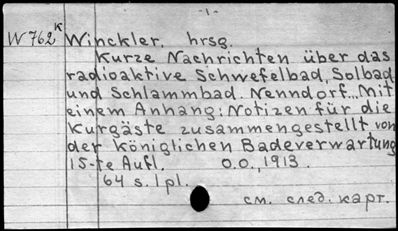 -1-
W762K Winckler, hrsg.
Kurze Nachrichten über das
radioaktive Schwefelbad, Solbad
und Schlammbad. Nenndorf.. Mit
einem Anhang: Notizen für die
Kurgäste zusammengestellt von
der königlichen Badeverwartung
15-te Aufl. o.o., 1913.
64 s. 1 pl.
см. след. карт.